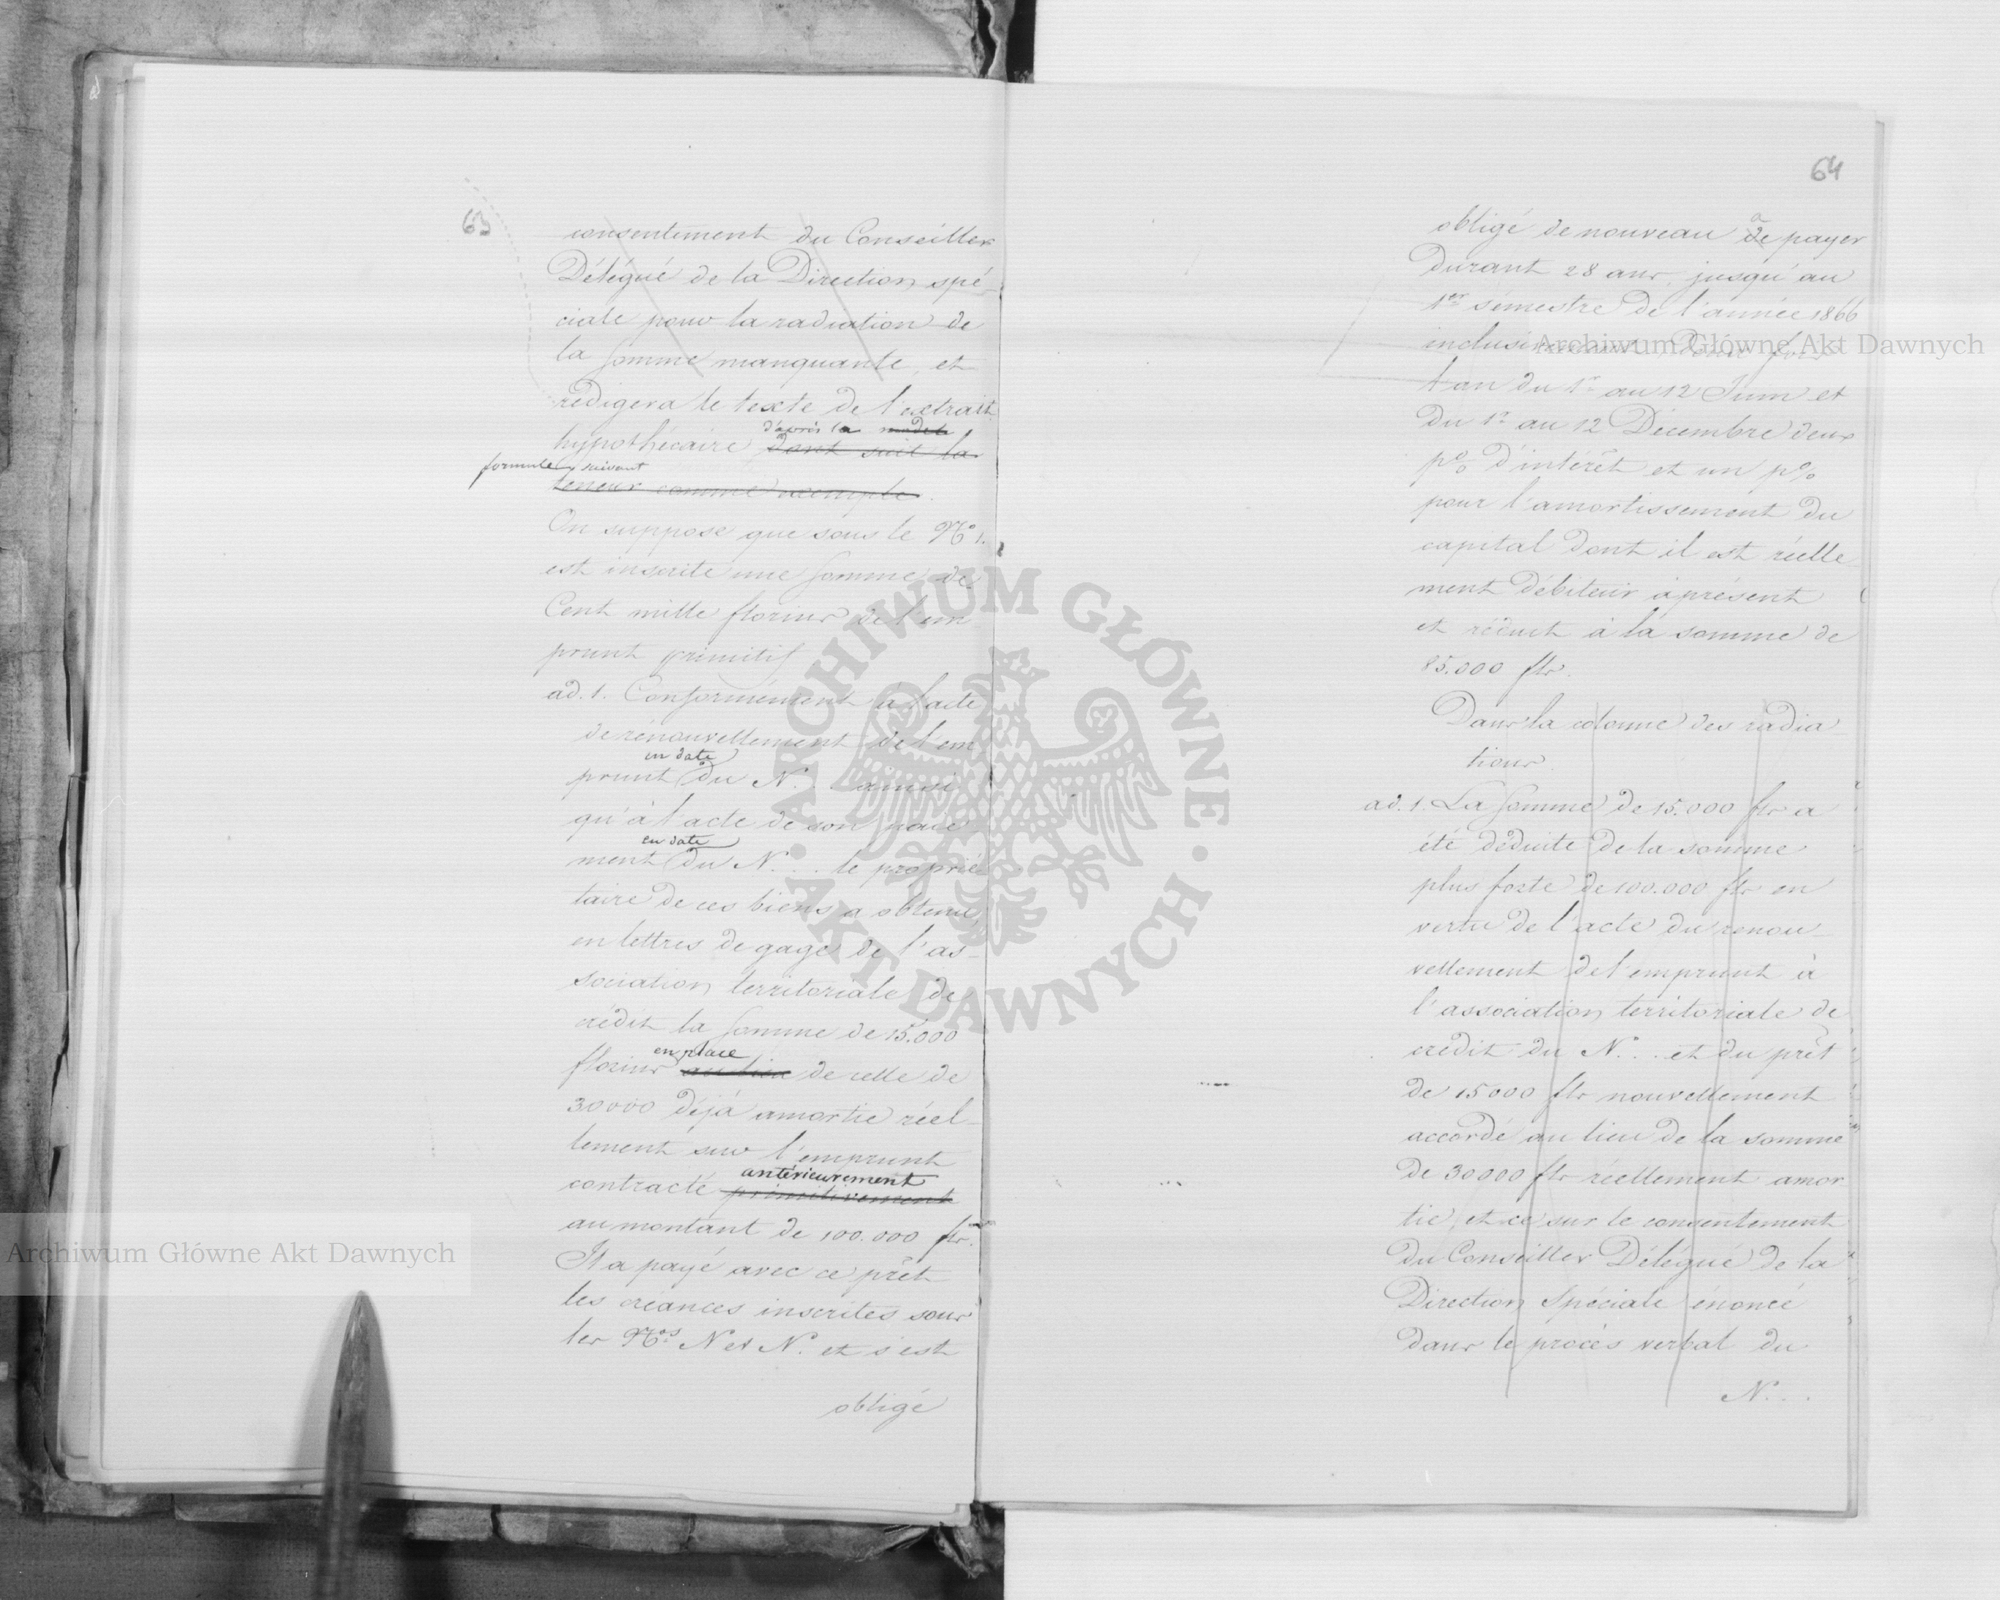 63
consentement du Conseiller
Délégué de la Direction spé-
ciale pour la radiation de
la somme manquante, et
rédigera le texte de l'extrait
d'après la modele
hypothécaire dont suit la
formule suivant
teneur comme exemple.
On suppose que sous le No 1.
est inscrite une somme de
Cent mille florins de l'em
prunt primitif
ad. 1. Conformément à l'acte
de rénouvellement de l'em
en date
prunt du N... ainsi
qu'à l'acte de son paie
en date
ment du N... le proprié
taire de ces biens a obtenu
en lettres de gage de l'as-
sociation territoriale de
crédit la somme de 15.000
en place
florins au lieu de celle de
30000 déjà amortie réel-
lement sur l'emprunt
antérieurement
contracté primitivement
au montant de 100.000 flr.
Il a payé avec ce prêt
les créances inscrites sous
les Nos N et N. et s'est
obligé
64
à
obligé de nouveau de payer
durant 28 ans, jusqu'au
1er sémestre de l'année 1866
inclusivement deux fois
l'an du 1r au 12 Juin et
du 1r au 12 Décembre deux
p% d'intérêt et un p%
pour l'amortissement du
capital dont il est réelle
ment débiteur à présent
et réduit à la somme de
85.000 flr.
Dans la colonne des radia
tions
ad. 1. La somme de 15.000 flr a
été déduite de la somme
plus forte de 100.000 flr en
vertu de l'acte du renou-
vellement de l'emprunt à
l'association territoriale de
crédit du N... et du prêt
de 15000 flr nouvellement
accordé au lieu de la somme
de 30000 flr réellement amor
tie, et ce sur le consentement
du Conseiller Délégué de la
Direction Spéciale énoncé
dans le procès verbal du
N...
Archiwum Główne Akt Dawnych
Archiwum Główne Akt Dawnych
ARCHIWUM GŁÓWNE · AKT DAWNYCH ·